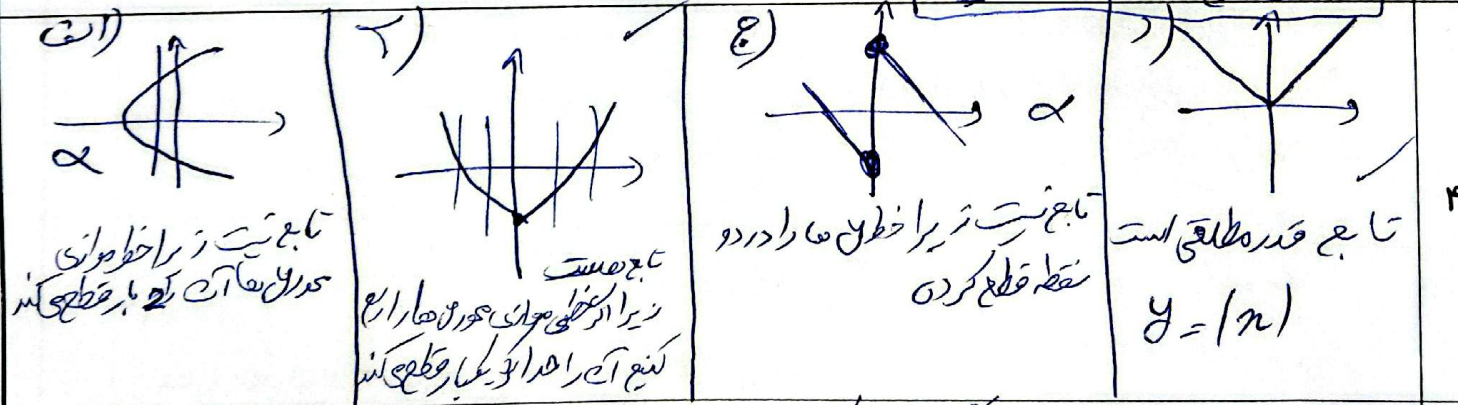 الف)
تابع نیست زیرا خط موازی
محور yها آن را 2 بار قطع می‌کند
ب)
تابع هست
زیرا اگر خطی موازی محور yها رسم
کنیم آن را حداکثر یکبار قطع می‌کند
ج)
تابع نیست زیرا خط yها را در دو
نقطه قطع کرده
د)
تابع قدر مطلقی است
y = |x|